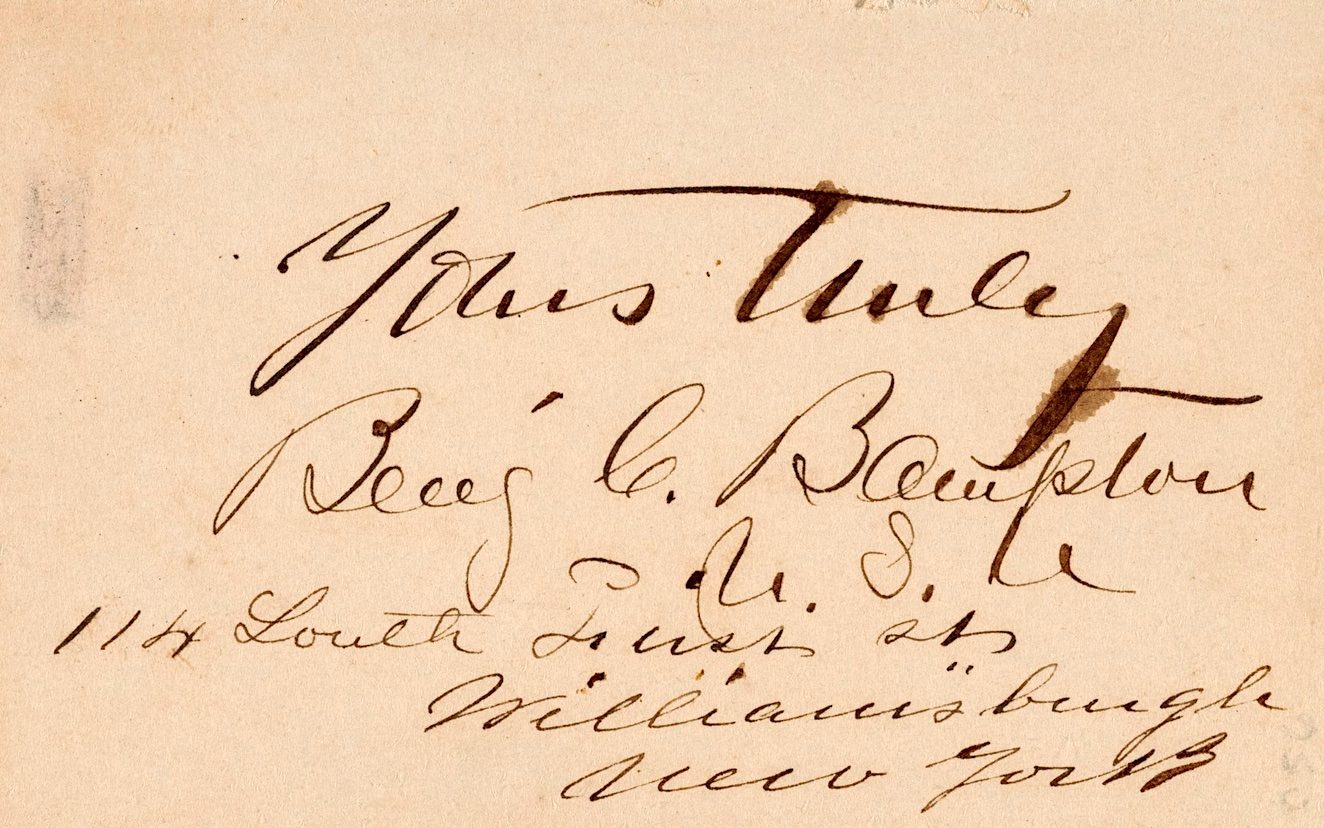 Yours Truly
Benj C. Bampton
U. S. A
114 South First st
Williamsburgh
New York